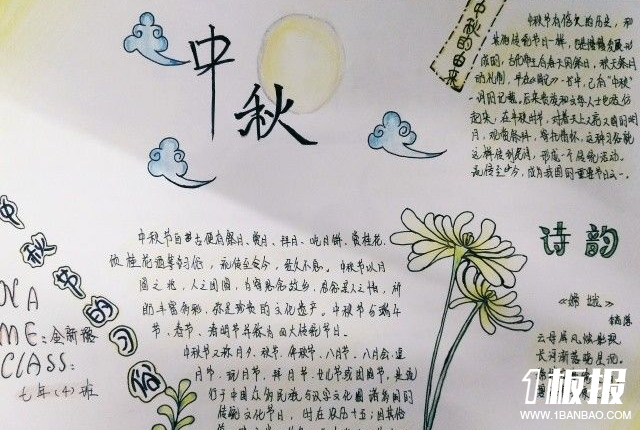 中秋
中秋的由来
中秋节有悠久的历史，和
其他传统节日一样，也是慢慢发展形
成的，古代帝王有春天祭日，秋天祭月
的礼制，早在《周礼》一书中，已有“中秋”
一词的记载。后来贵族和文学人士也效仿
起来，在中秋时节，对着天上又亮又圆的明
月，观赏祭拜，寄托情怀，这种习俗就
这样传到民间，形成一个传统活动。
中秋节自古便有祭月、赏月、拜月、吃月饼、赏桂花、
饮桂花酒等习俗，流传至今，经久不息。中秋节以月
圆之兆，人之团圆，为寄思念故乡，思念亲人之情，祈
节、春节、清明节并称为四大传统节日。
中秋节又称月夕、秋节、仲秋节、八月节、八月会、追
月节、玩月节、拜月节、女儿节或团圆节，是流
行于中国众多民族与汉字文化圈诸国的
传统文化节日，时在农历十五；因其恰
诗韵
《嫦娥》
云母屏风烛影深
长河渐落晓星沉。
中秋节的习俗
NA
ME:
CLASS:
七年(4)班
1板报
WWW.1BANBAO.COM